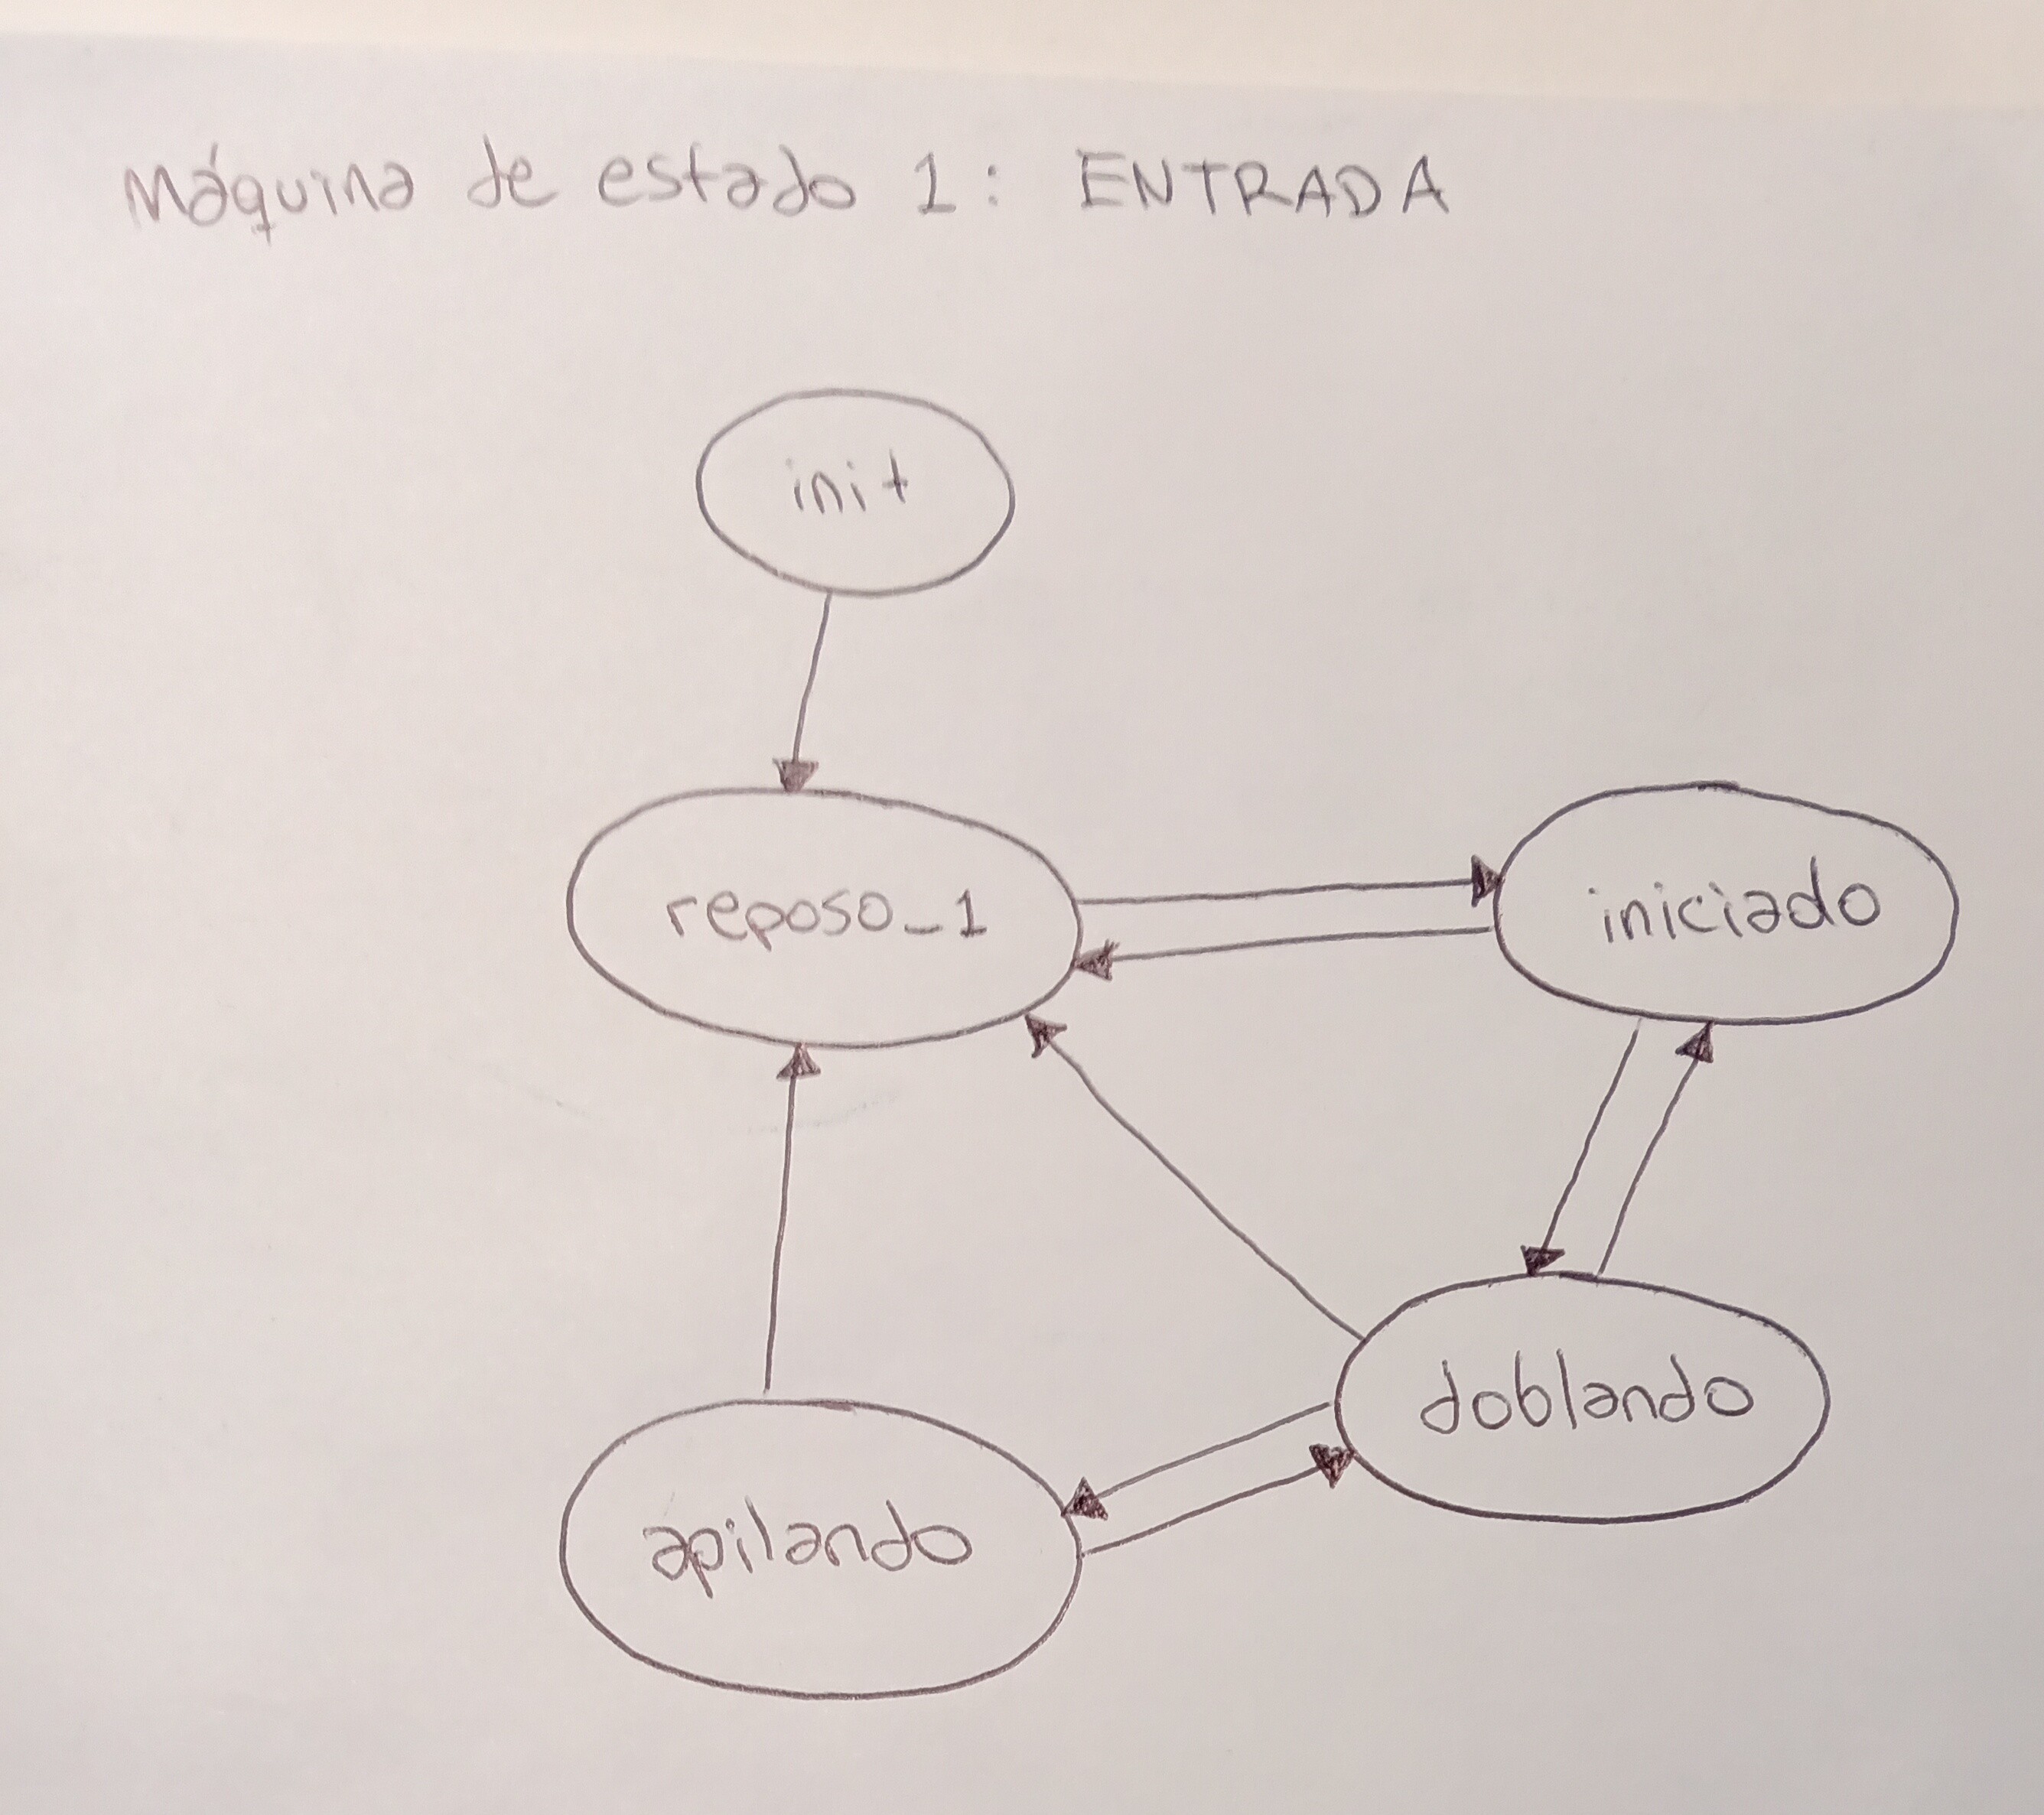 Máquina de estado 1: ENTRADA
init
reposo_1
iniciado
doblando
apilando